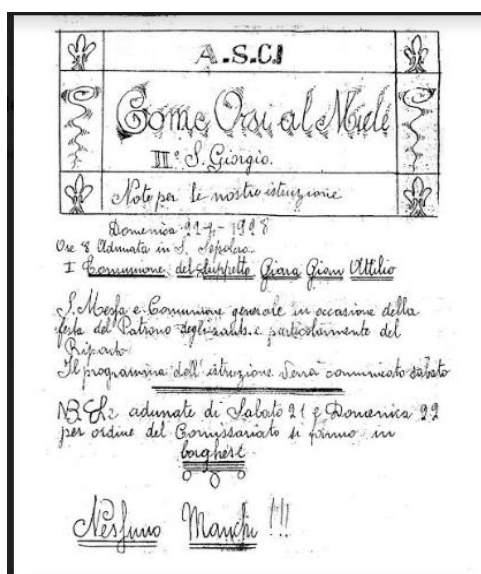 A.S.C.I
Come Orsi al Miele
II° S. Giorgio.
Note per le nostre istruzione
Domenica 22-4-1928
Ore 8 Adunata in S. Sepolcro
I Comunione del Lupetto Giara Gian Attilio
S. Messa e Comunione generale in occasione della
festa del Patrono degli e particolarmente del
Riparto
Il programma dell'istruzione verrà comunicato sabato
NB. Le adunate di Sabato 21 e Domenica 22
per ordine del Comissariato si fanno in
borghese
Nessuno Manchi !!!